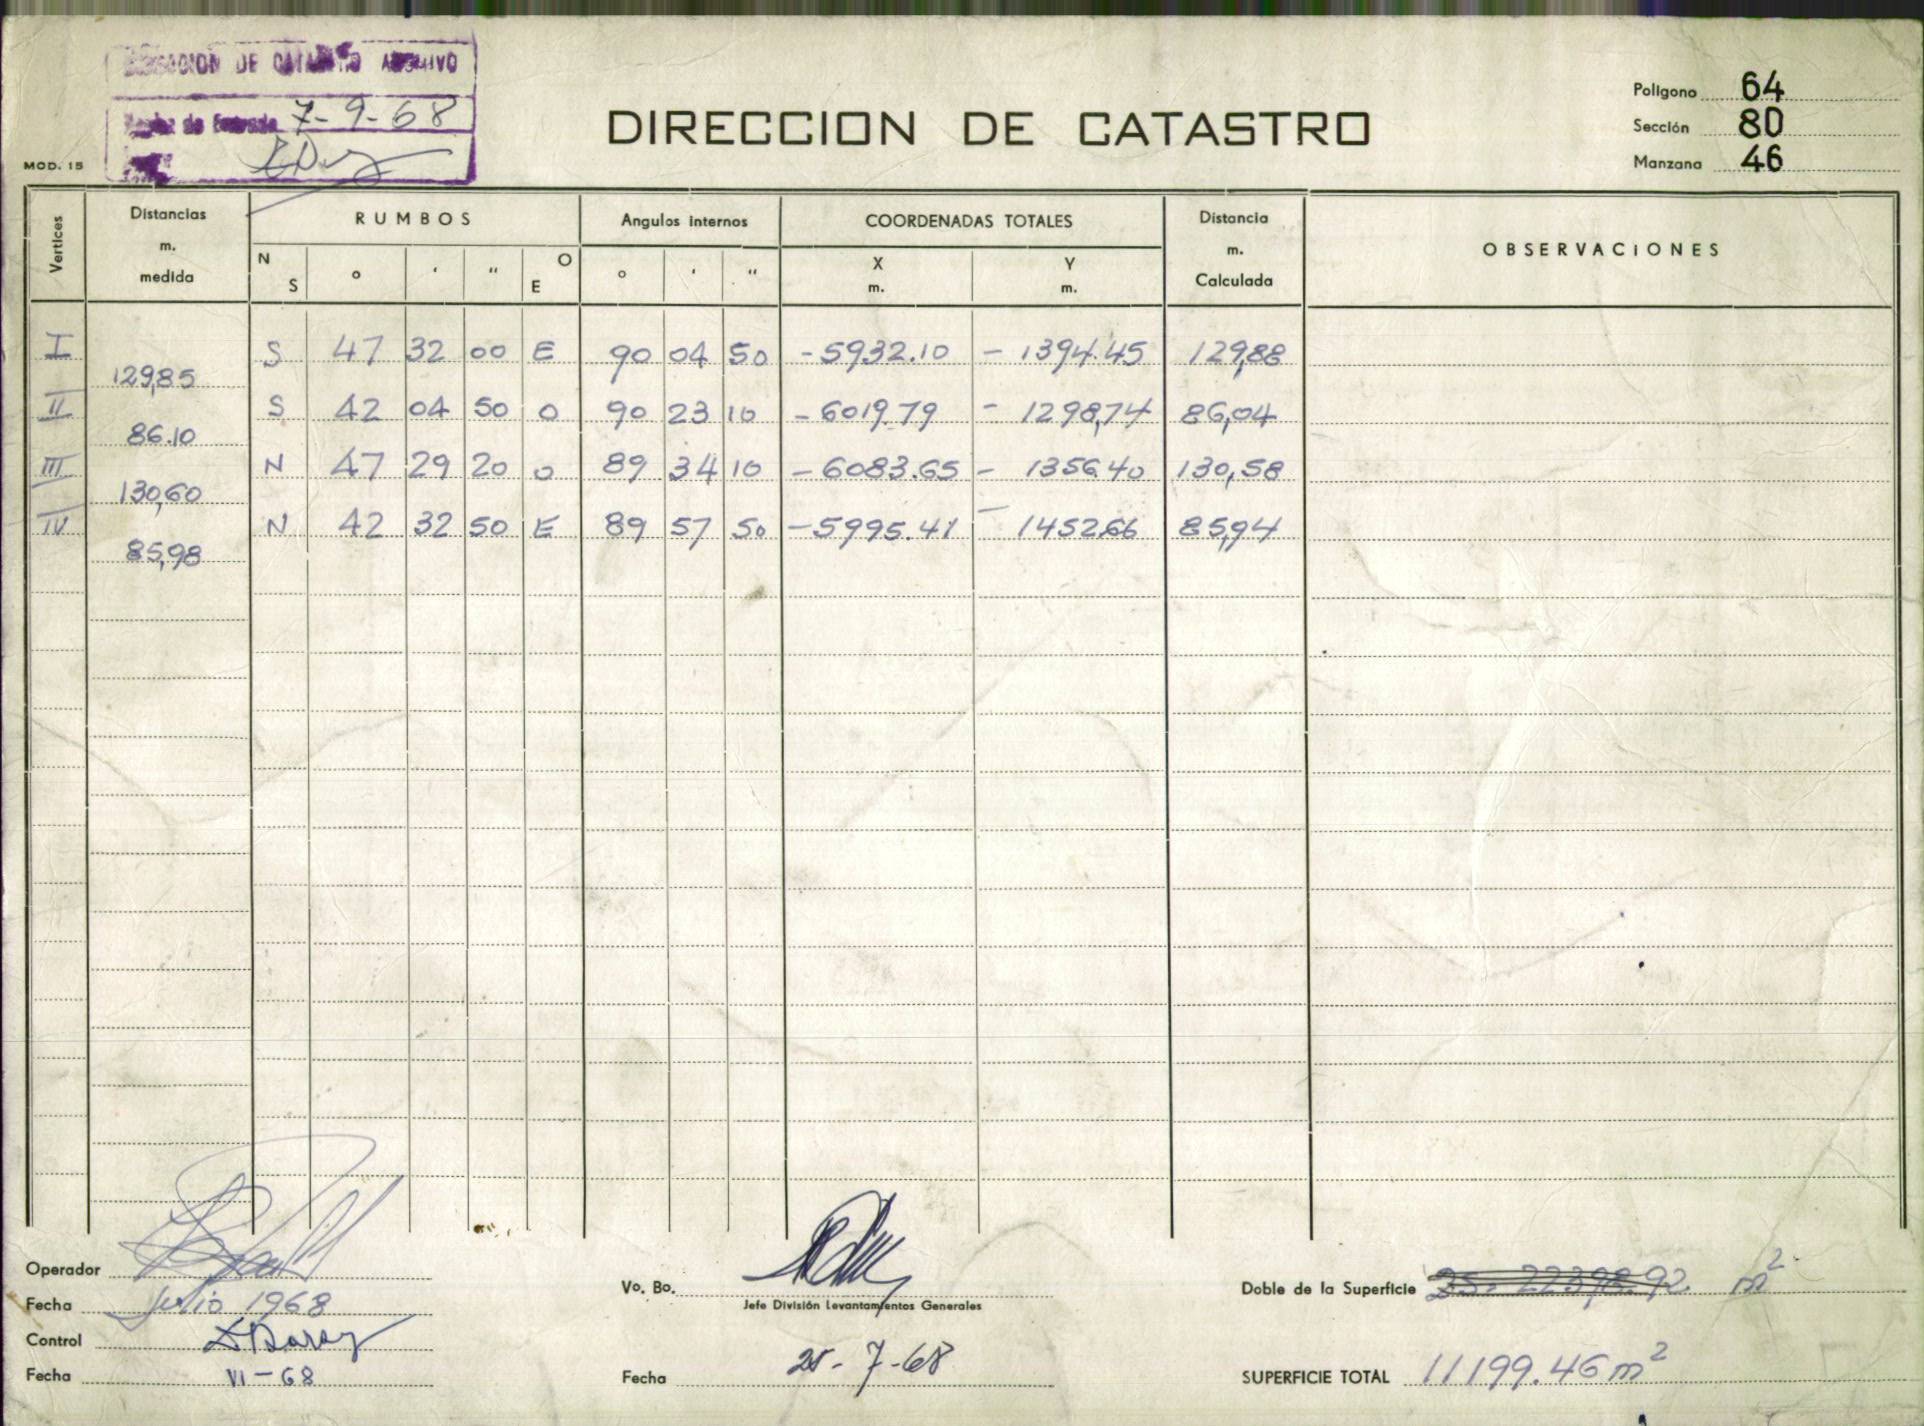 DIRECCION DE CATASTRO ARCHIVO
Fecha de Entrada 7-9-68
MOD. 15
DIRECCION DE CATASTRO
Poligono 64
Sección 80
Manzana 46
Vertices
Distancias m. medida
RUMBOS
N S ° ' " O E
Angulos internos
° ' "
COORDENADAS TOTALES
X m. Y m.
Distancia m. Calculada
OBSERVACIONES
I S 47 32 00 E 90 04 50 -5932.10 - 1394.45 129,88
129,85
II S 42 04 50 O 90 23 10 -6019.79 - 1298,74 86,04
86.10
III N 47 29 20 O 89 34 10 -6083.65 - 1356.40 130,58
130,60
IV N 42 32 50 E 89 57 50 -5995.41 - 1452.66 85,94
85,98
Operador
Fecha Julio 1968
Control
Fecha VI-68
Vo. Bo.
Jefe División Levantamientos Generales
Fecha 25-7-68
Doble de la Superficie 22398.92 m²
SUPERFICIE TOTAL 11199.46 m²